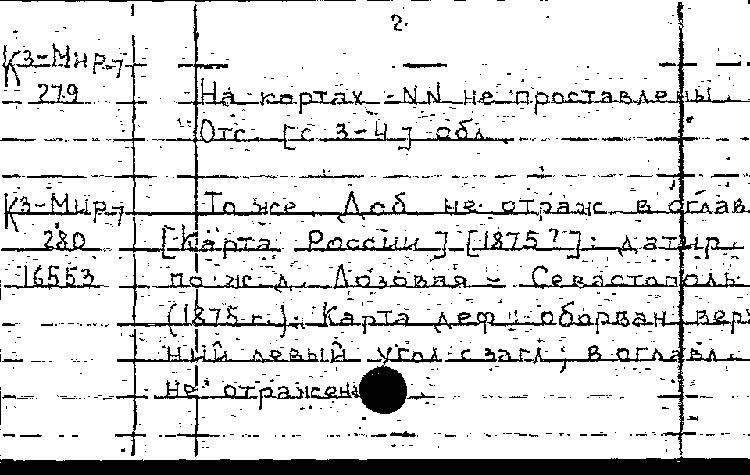 2.
К3-Мир-7
279
На картах -NN не проставлены.
Отс. [с 3-4] обл.
К3-Мир-7
280
16553
То же. Доб. не отраж в оглав
[Карта России] [1875?]: датир.
по ж.д. Лозовая - Севастополь
(1875 г.). Карта деф.: оборван верх
ний левый угол с загл; в оглавл.
не отражен